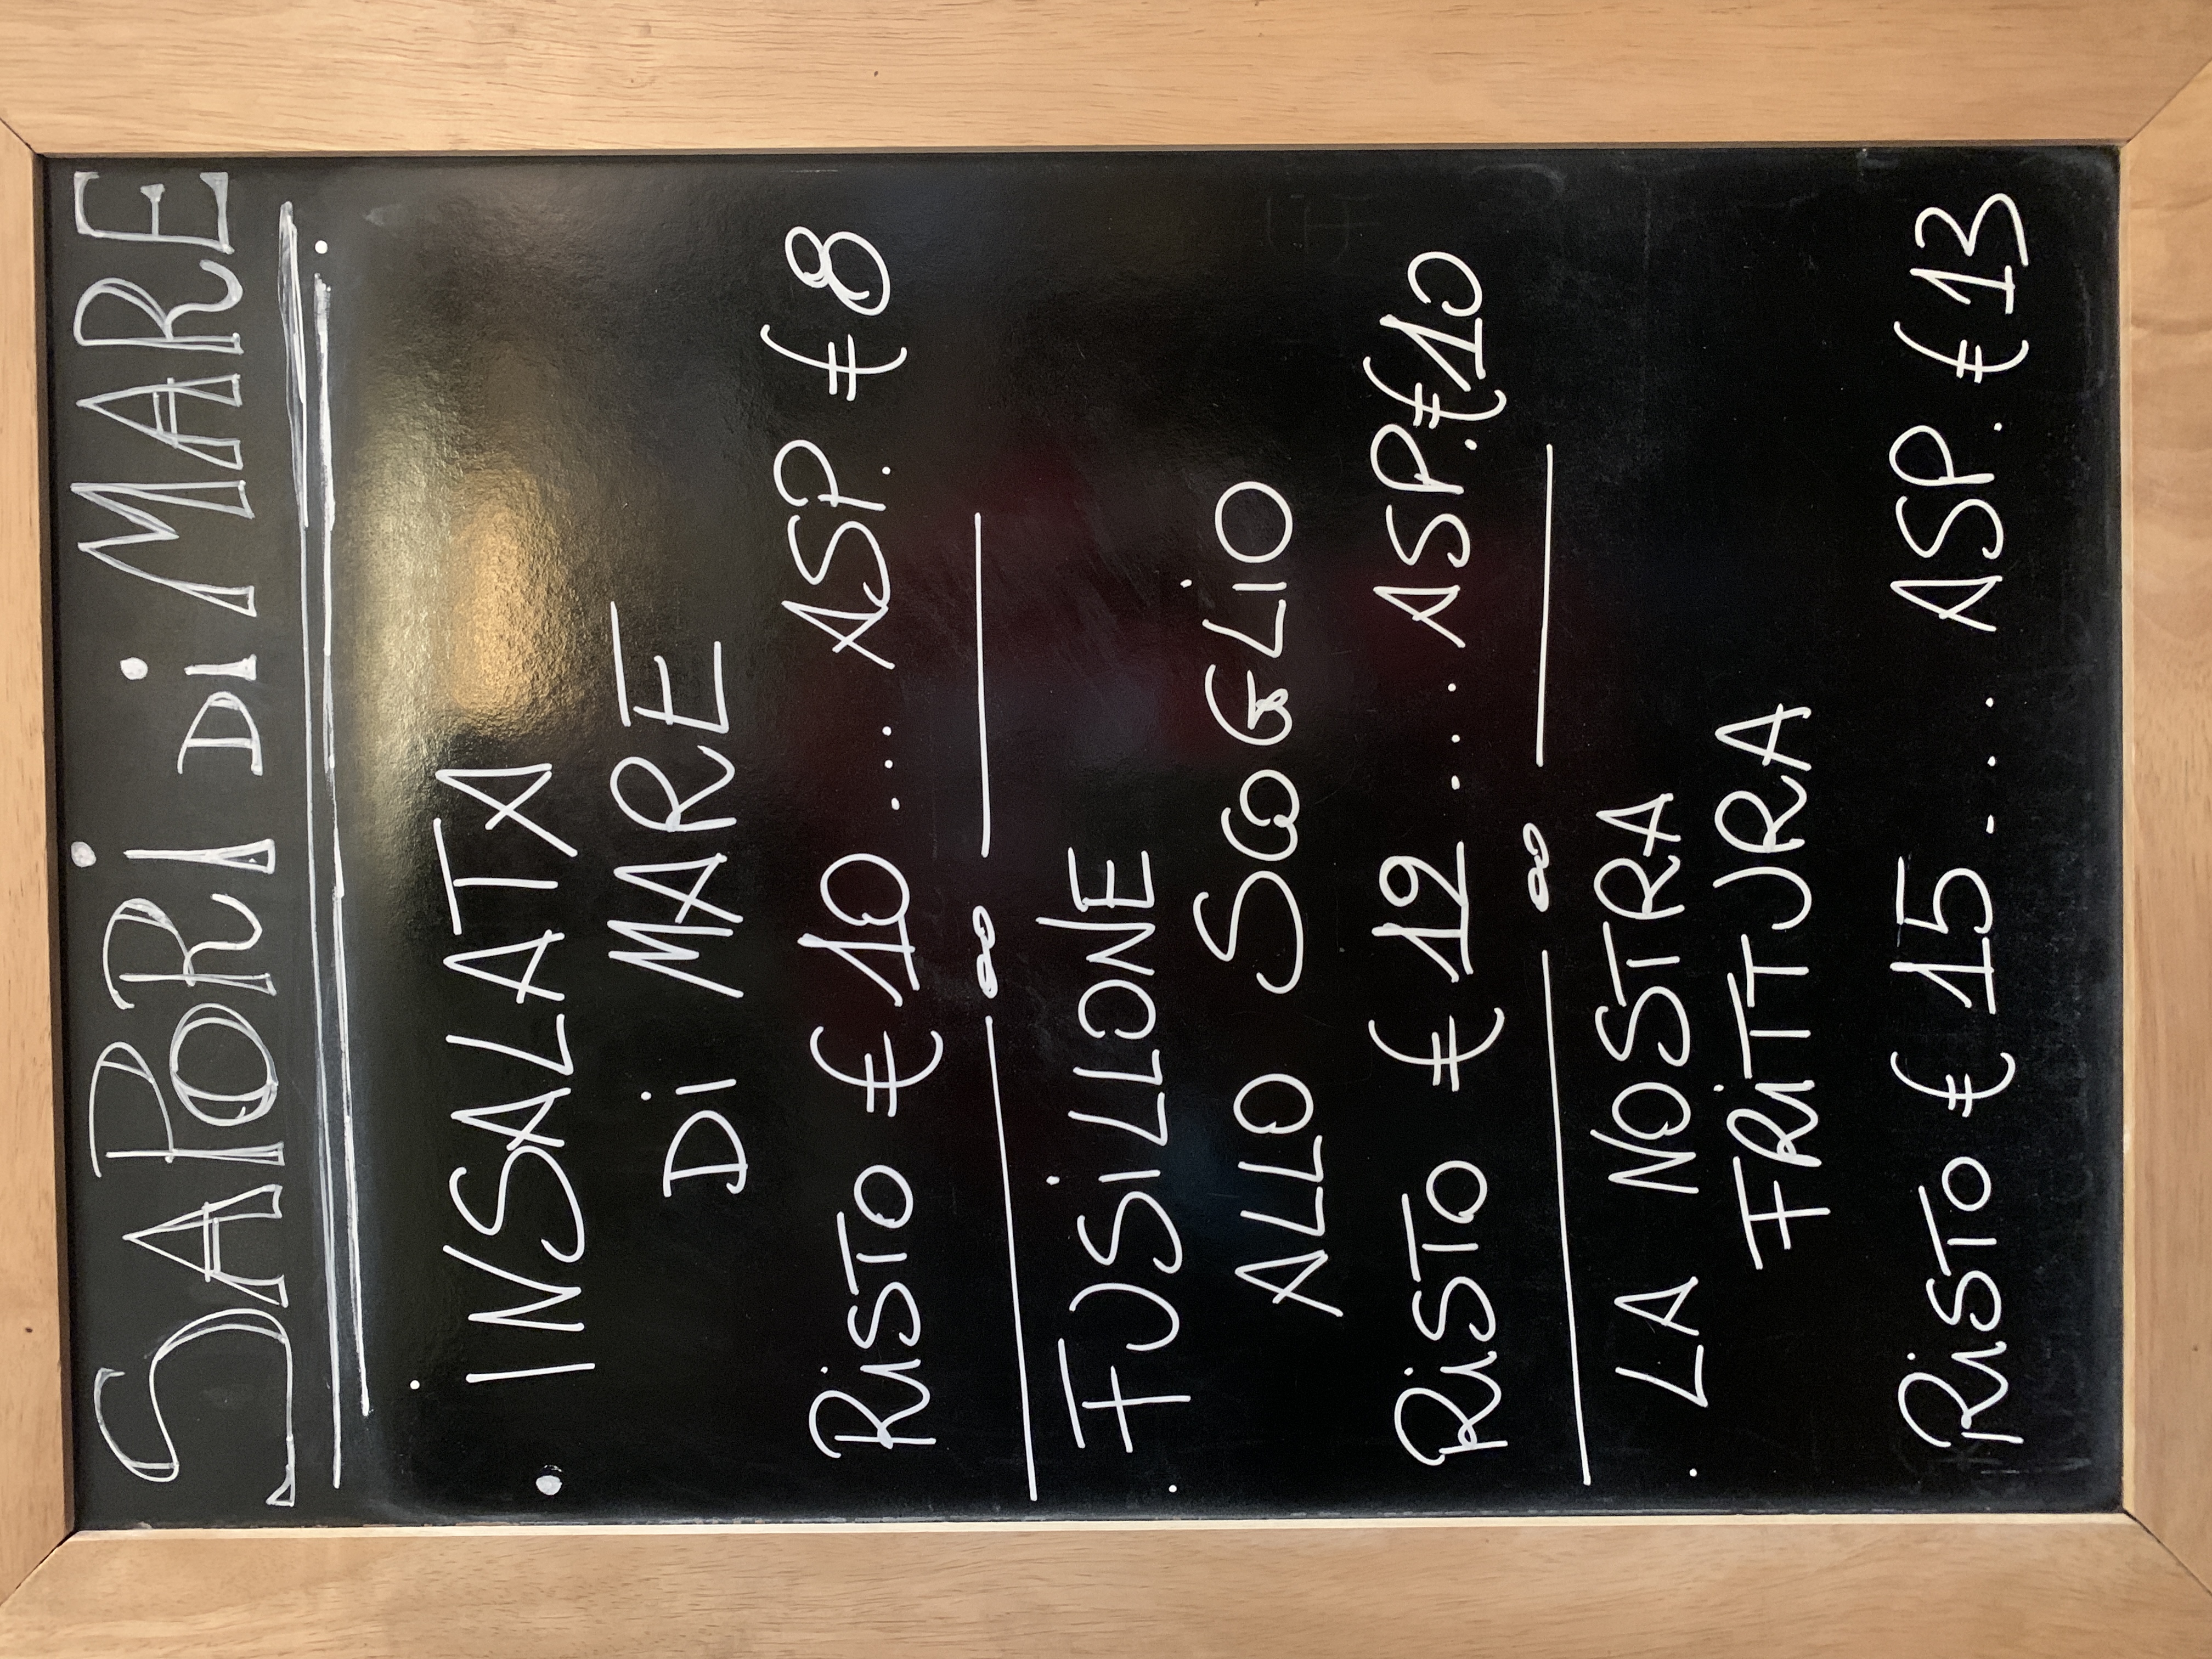 SAPORi Di MARE
• INSALATA
Di MARE
RiSTO € 10 ... ASP. € 8
• FUSiLLONE
ALLO SCOGLiO
RiSTO € 12 ... ASP. € 10
• LA NOSTRA
FRiTTURA
RiSTO € 15 ... ASP. € 13